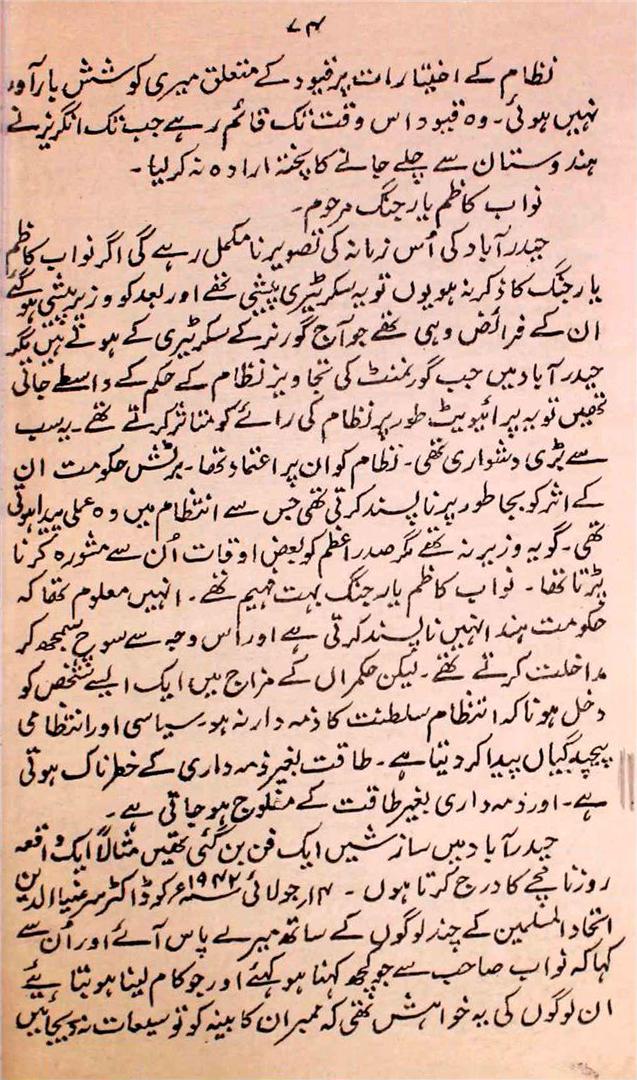 ۷۴
نظام کے اختیارات پر قیود کے متعلق میری کوشش بارآور
نہیں ہوئی۔ وہ قیود اس وقت تک قائم رہے جب تک انگریز نے
ہندوستان سے چلے جانے کا پختہ ارادہ نہ کر لیا۔
نواب کاظم یار جنگ مرحوم۔
حیدرآباد کی اُس زمانہ کی تصویر نامکمل رہے گی اگر نواب کاظم
یار جنگ کا ذکر نہ ہو یوں تو یہ سکرٹیری پیشی تھے اور بعد کو وزیر پیشی ہو گئے
ان کے فرائض وہی تھے جو آج گورنر کے سکرٹیری کے ہوتے ہیں مگر
حیدرآباد میں جب گورنمنٹ کی تجاویز نظام کے حکم کے واسطے جاتی
تھیں تو یہ پرائیویٹ طور پر نظام کی رائے کو متاثر کرتے تھے۔ یہ سب
سے بڑی دشواری تھی۔ نظام کو ان پر اعتماد تھا۔ برٹش حکومت ان
کے اثر کو بجا طور پر ناپسند کرتی تھی جس سے انتظام میں وہ عملی پیدا ہوتی
تھی۔ گو یہ وزیر نہ تھے مگر صدر اعظم کو بعض اوقات اُن سے مشورہ کرنا
پڑتا تھا۔ نواب کاظم یار جنگ بہت فہیم تھے۔ انہیں معلوم تھا کہ
حکومت ہند انہیں ناپسند کرتی ہے اور اس وجہ سے سوچ سمجھ کر
مداخلت کرتے تھے۔ لیکن حکمراں کے مزاج میں ایک ایسے شخص کو
دخل ہونا کہ انتظام سلطنت کا ذمہ دار نہ ہو۔ سیاسی اور انتظامی
پیچیدگیاں پیدا کر دیتا ہے۔ طاقت بغیر ذمہ داری کے خطرناک ہوتی
ہے۔ اور ذمہ داری بغیر طاقت کے مفلوج ہو جاتی ہے۔
حیدرآباد میں سازشیں ایک فن بن گئی تھیں مثلاً ایک واقعہ
روزنامچے کا درج کرتا ہوں۔ ۱۴ر جولائی ۱۹۴۲ء کو ڈاکٹر سر ضیاالدین
اتحاد المسلمین کے چند لوگوں کے ساتھ میرے پاس آئے اور اُن سے
کہا کہ نواب صاحب سے جو کچھ کہنا ہو کہئے اور جو کام لینا ہو بتایئے
ان لوگوں کی یہ خواہش تھی کہ ممبران کابینہ کو توسیعات نہ دیجائیں